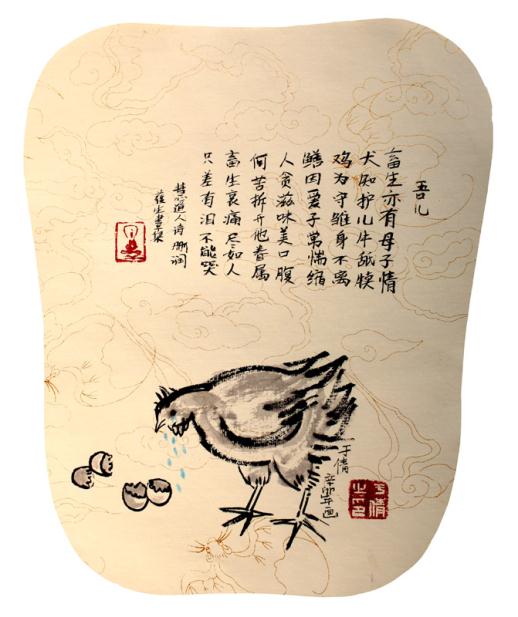 吾儿
畜生亦有母子情
犬知护儿牛舐犊
鸡为守雏身不离
鳝因爱子常惴缩
人贪滋味美口腹
何苦拆开他眷属
畜生哀痛尽如人
只差有泪不能哭
道人诗 删润
生书
于倩
辛卯年画
于倩之印